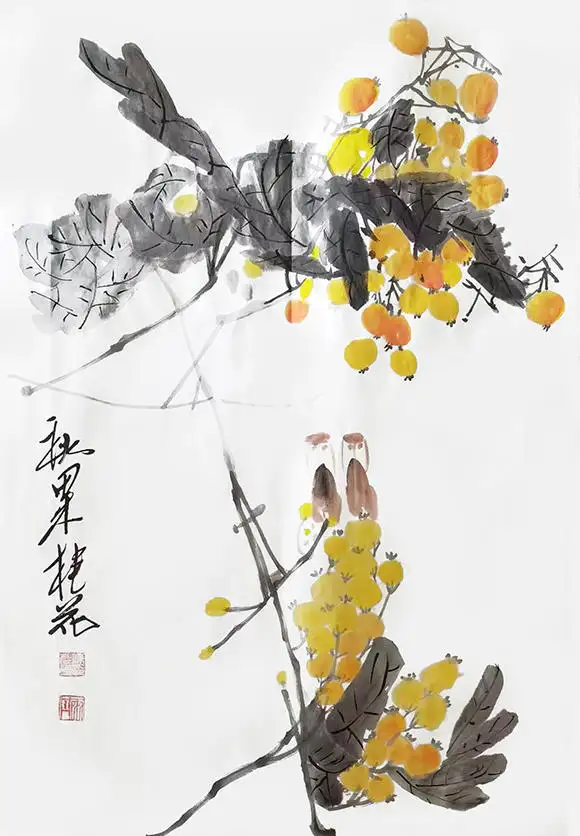 秋果桂花